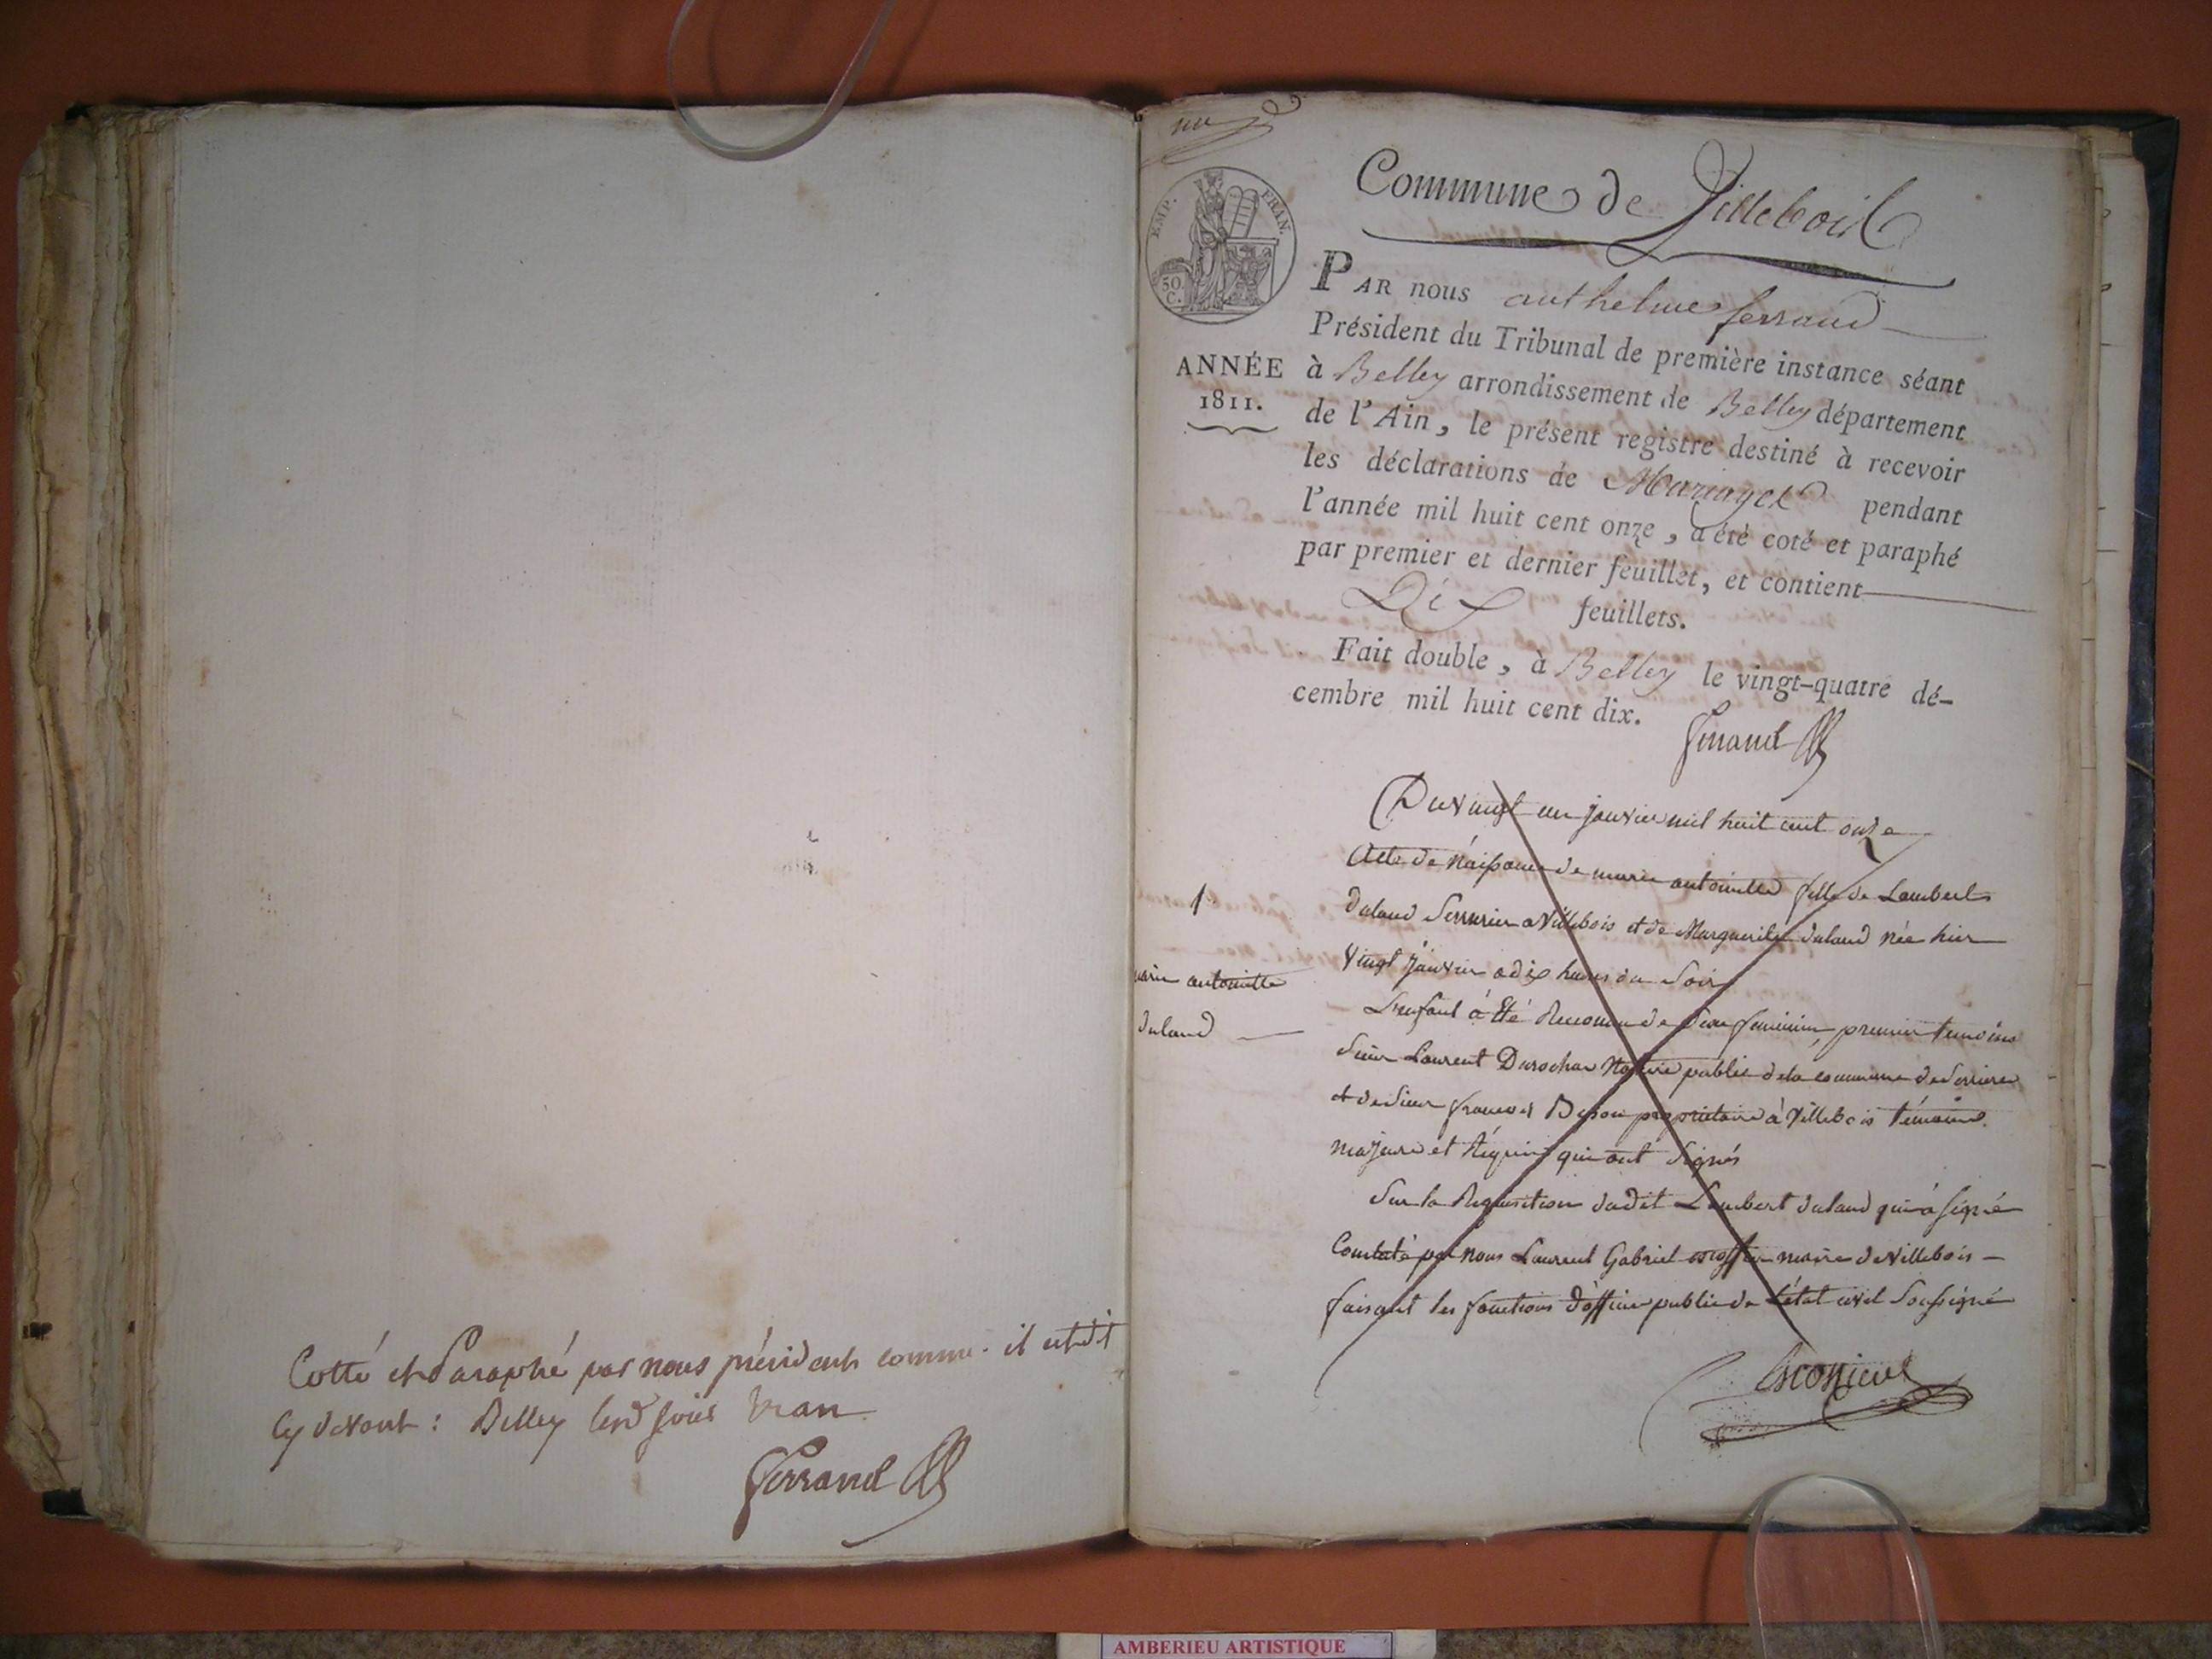 Cotté et Paraphé par nous président comme il est dit
cy devant : Belley led jour & an
Ferrand
un
EMP. FRAN.
50.
C.
Commune de Villebois
PAR nous anthelme ferrand
Président du Tribunal de première instance séant
ANNÉE
1811.
à Belley arrondissement de Belley département
de l'Ain, le présent registre destiné à recevoir
les déclarations de Mariages pendant
l'année mil huit cent onze, a été coté et paraphé
par premier et dernier feuillet, et contient
Dix feuillets.
Fait double, à Belley le vingt-quatre dé-
cembre mil huit cent dix.
Ferrand
Du vingt un janvier mil huit cent onze
Acte de Naissance de marie antoinette fille de Lambert
1
marie antoinette
dulaud
dulaud Serrurier a Villebois et de Marguerite dulaud née hier
Vingt Janvier a dix heures du Soir
L'enfant à été Reconnu de Sexe feminin, premier temoins
Sieur Laurent Durochat Notaire public de la commune de Serriere
et de Sieur francois Bozon propriétaire à Villebois témoins
majeurs et Réquis qui ont signés
Sur la Requisition dudit Lambert dulaud qui a signé
Constaté par nous Laurent Gabriel escoffier maire de Villebois
faisant les fonctions d'officier public de l'état civil Soussigné
Escoffier
AMBERIEU ARTISTIQUE